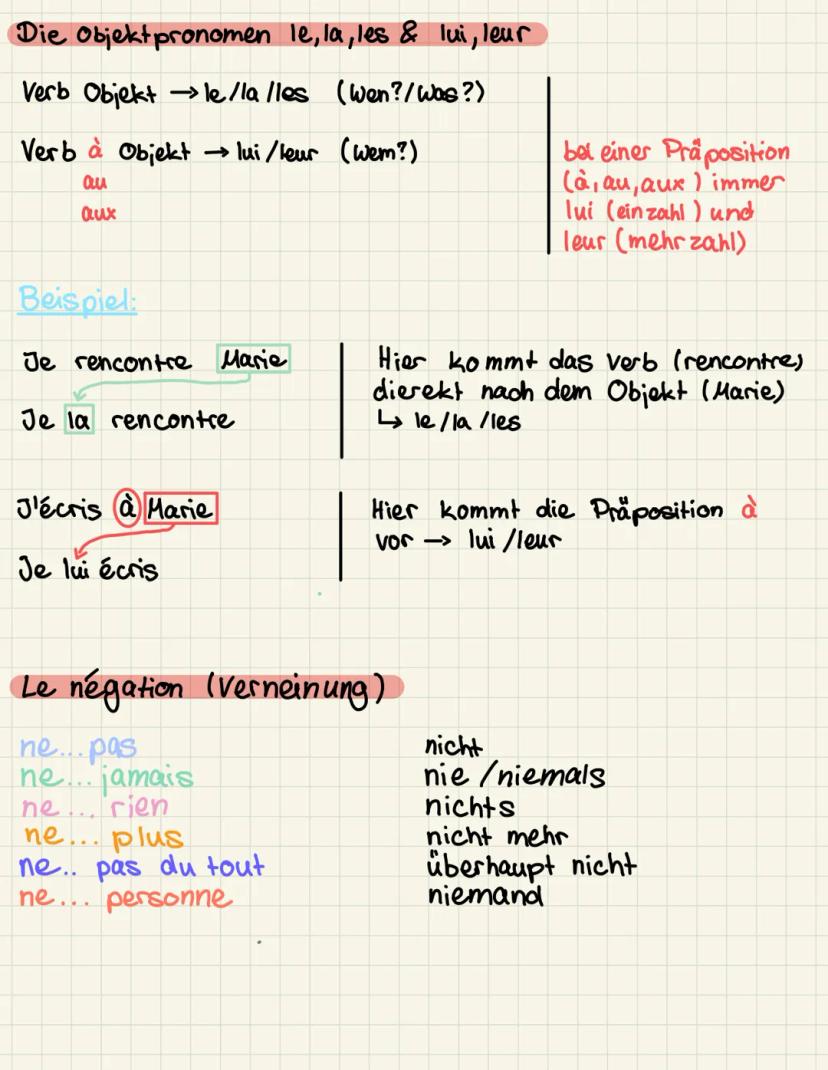 Die Objektpronomen le, la, les & lui, leur
Verb Objekt → le/la/les (Wen?/Was?)
Verb à Objekt → lui/leur (Wem?)
au
aux
bei einer Präposition
(à, au, aux) immer
lui (einzahl) und
leur (mehrzahl)
Beispiel:
Je rencontre Marie
Je la rencontre
Hier kommt das Verb (rencontre)
dierekt nach dem Objekt (Marie)
↳ le/la/les
J'écris à Marie
Je lui écris
Hier kommt die Präposition à
vor → lui/leur
Le négation (Verneinung)
ne...pas nicht
ne... jamais nie/niemals
ne... rien nichts
ne... plus nicht mehr
ne.. pas du tout überhaupt nicht
ne... personne niemand